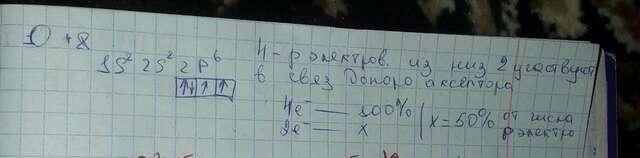 O +8
1S² 2S² 2p⁶
↑↓ ↑ ↑
4 - р электров. из низ 2 участвуют
в связ Донорo аксептора
4е⁻ — 100%
2е⁻ — x
x = 50% от числа
р электро